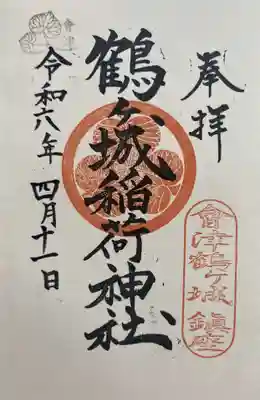 奉拝
會津鶴ヶ城鎮座
鶴ヶ城稲荷神社
令和六年 四月十一日